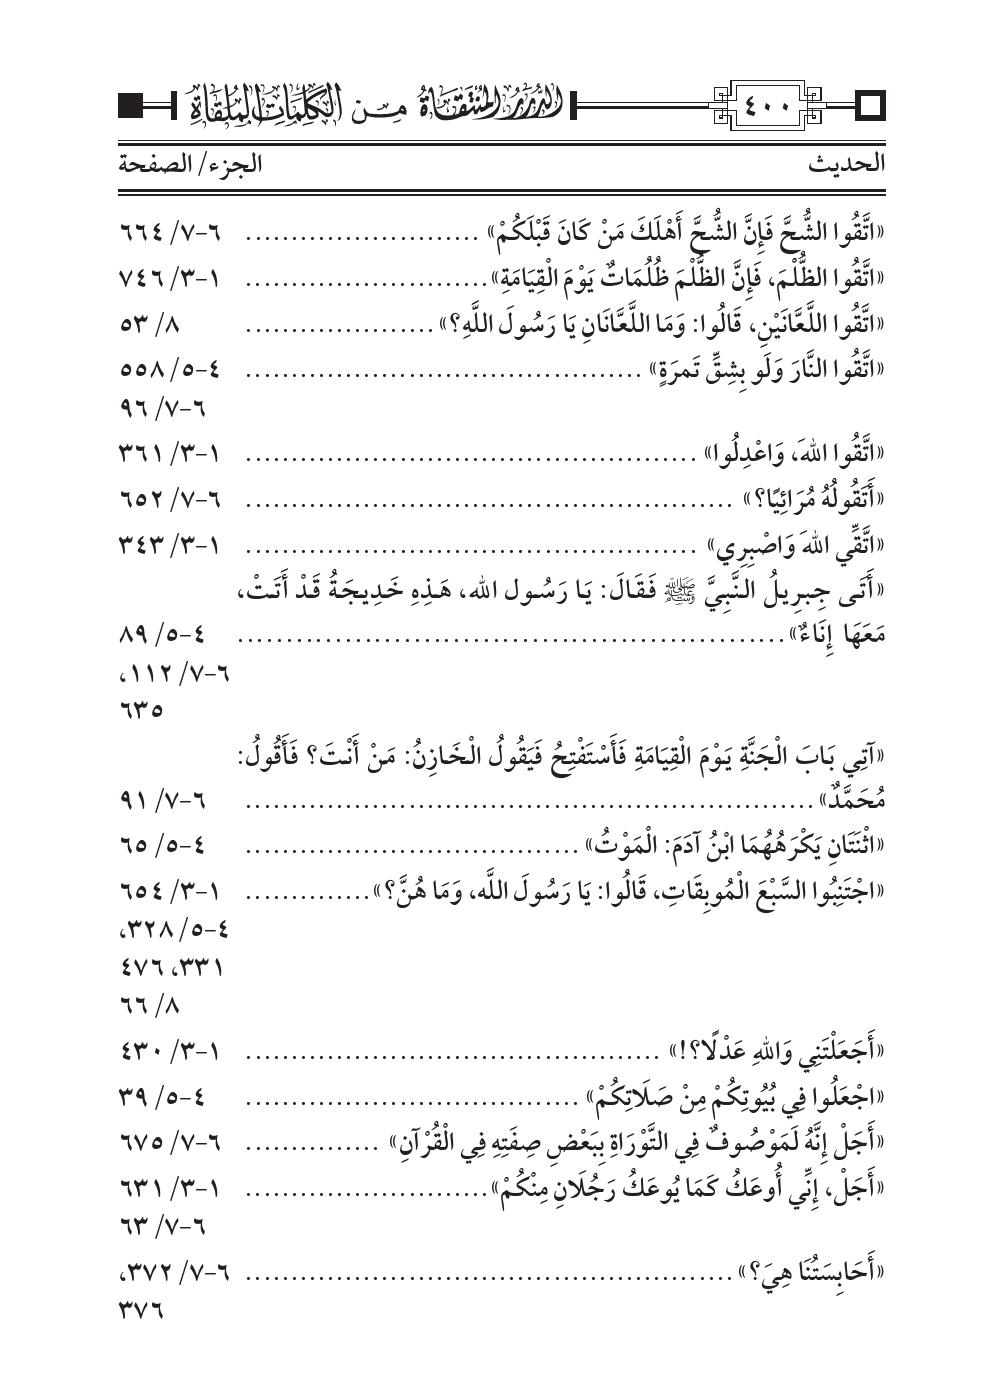 ٤٠٠ الدُّرَرُ المُنْتَقَاةُ مِـن الكَلِمَاتِ المُلْقَاةِ
الحديث الجزء/ الصفحة
«اتَّقُوا الشُّحَّ فَإِنَّ الشُّحَّ أَهْلَكَ مَنْ كَانَ قَبْلَكُمْ» ........................ ٦-٧/ ٦٦٤
«اتَّقُوا الظُّلْمَ، فَإِنَّ الظُّلْمَ ظُلُمَاتٌ يَوْمَ الْقِيَامَةِ» .......................... ١-٣/ ٧٤٦
«اتَّقُوا اللَّعَّانَيْنِ، قَالُوا: وَمَا اللَّعَّانَانِ يَا رَسُولَ اللَّهِ؟» .................... ٨/ ٥٣
«اتَّقُوا النَّارَ وَلَو بِشِقِّ تَمرَةٍ» ........................................... ٤-٥/ ٥٥٨
٦-٧/ ٩٦
«اتَّقُوا اللهَ، وَاعْدِلُوا» ................................................. ١-٣/ ٣٦١
«أَتَقُولُهُ مُرَائِيًا؟» ..................................................... ٦-٧/ ٦٥٢
«اتَّقِّي اللهَ وَاصْبِرِي» ................................................. ١-٣/ ٣٤٣
«أَتَى جِبرِيلُ النَّبِيَّ ﷺ فَقَالَ: يَا رَسُول الله، هَذِهِ خَدِيجَةُ قَدْ أَتَتْ،
مَعَهَا إِنَاءٌ» ......................................................... ٤-٥/ ٨٩
٦-٧/ ١١٢،
٦٣٥
«آتِي بَابَ الْجَنَّةِ يَوْمَ الْقِيَامَةِ فَأَسْتَفْتِحُ فَيَقُولُ الْخَازِنُ: مَنْ أَنْتَ؟ فَأَقُولُ:
مُحَمَّدٌ» .............................................................. ٦-٧/ ٩١
«اثْنَتَانِ يَكْرَهُهُمَا ابْنُ آدَمَ: الْمَوْتُ» .................................... ٤-٥/ ٦٥
«اجْتَنِبُوا السَّبْعَ الْمُوبِقَاتِ، قَالُوا: يَا رَسُولَ اللَّه، وَمَا هُنَّ؟» .............. ١-٣/ ٦٥٤
٤-٥/ ٣٢٨،
٣٣١، ٤٧٦
٨/ ٦٦
«أَجَعَلْتَنِي وَاللهِ عَدْلًا؟!» ............................................. ١-٣/ ٤٣٠
«اجْعَلُوا فِي بُيُوتِكُمْ مِنْ صَلَاتِكُمْ» .................................... ٤-٥/ ٣٩
«أَجَلْ إِنَّهُ لَمَوْصُوفٌ فِي التَّوْرَاةِ بِبَعْضِ صِفَتِهِ فِي الْقُرْآنِ» ............... ٦-٧/ ٦٧٥
«أَجَلْ، إِنِّي أُوعَكُ كَمَا يُوعَكُ رَجُلَانِ مِنْكُمْ» .......................... ١-٣/ ٦٣١
٦-٧/ ٦٣
«أَحَابِسَتُنَا هِيَ؟» ..................................................... ٦-٧/ ٣٧٢،
٣٧٦